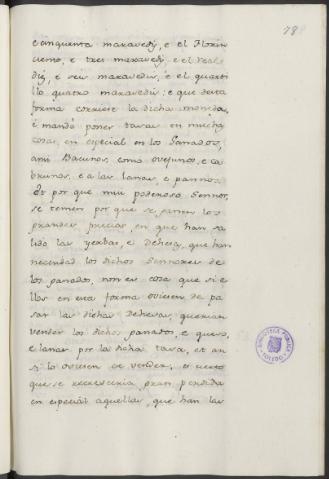 78
cinquenta maravedis, e el Florin
ciento, e tres maravedis, e el real
diez, e seis maravedis, e el quarti
llo quatro maravedis: e que desta
forma corriese la dicha moneda,
e mandó poner tasas en muchas
cosas, en especial en los Ganados,
ansi Bacunos, como ovejunos, e ca
brunos, e a las lanas, e pannos.
Et por que muy poderoso Sennor,
se temen por que se pares los
grandes precios, en que han sa
lido las yerbas, e Dehesas, que han
necesidad los dichos Sennores de
los ganados, non es cosa que si e
llas en esta forma oviesen de pa
sar las dichas dehesas, querrian
vender los dichos ganados, e queso,
e lanas por la dicha tasa, et an
si lo oviesen de vender, es cierto
que se recresceria gran perdida
en especial aquellas, que han las
BIBLIOTECA PUBLICA
TOLEDO